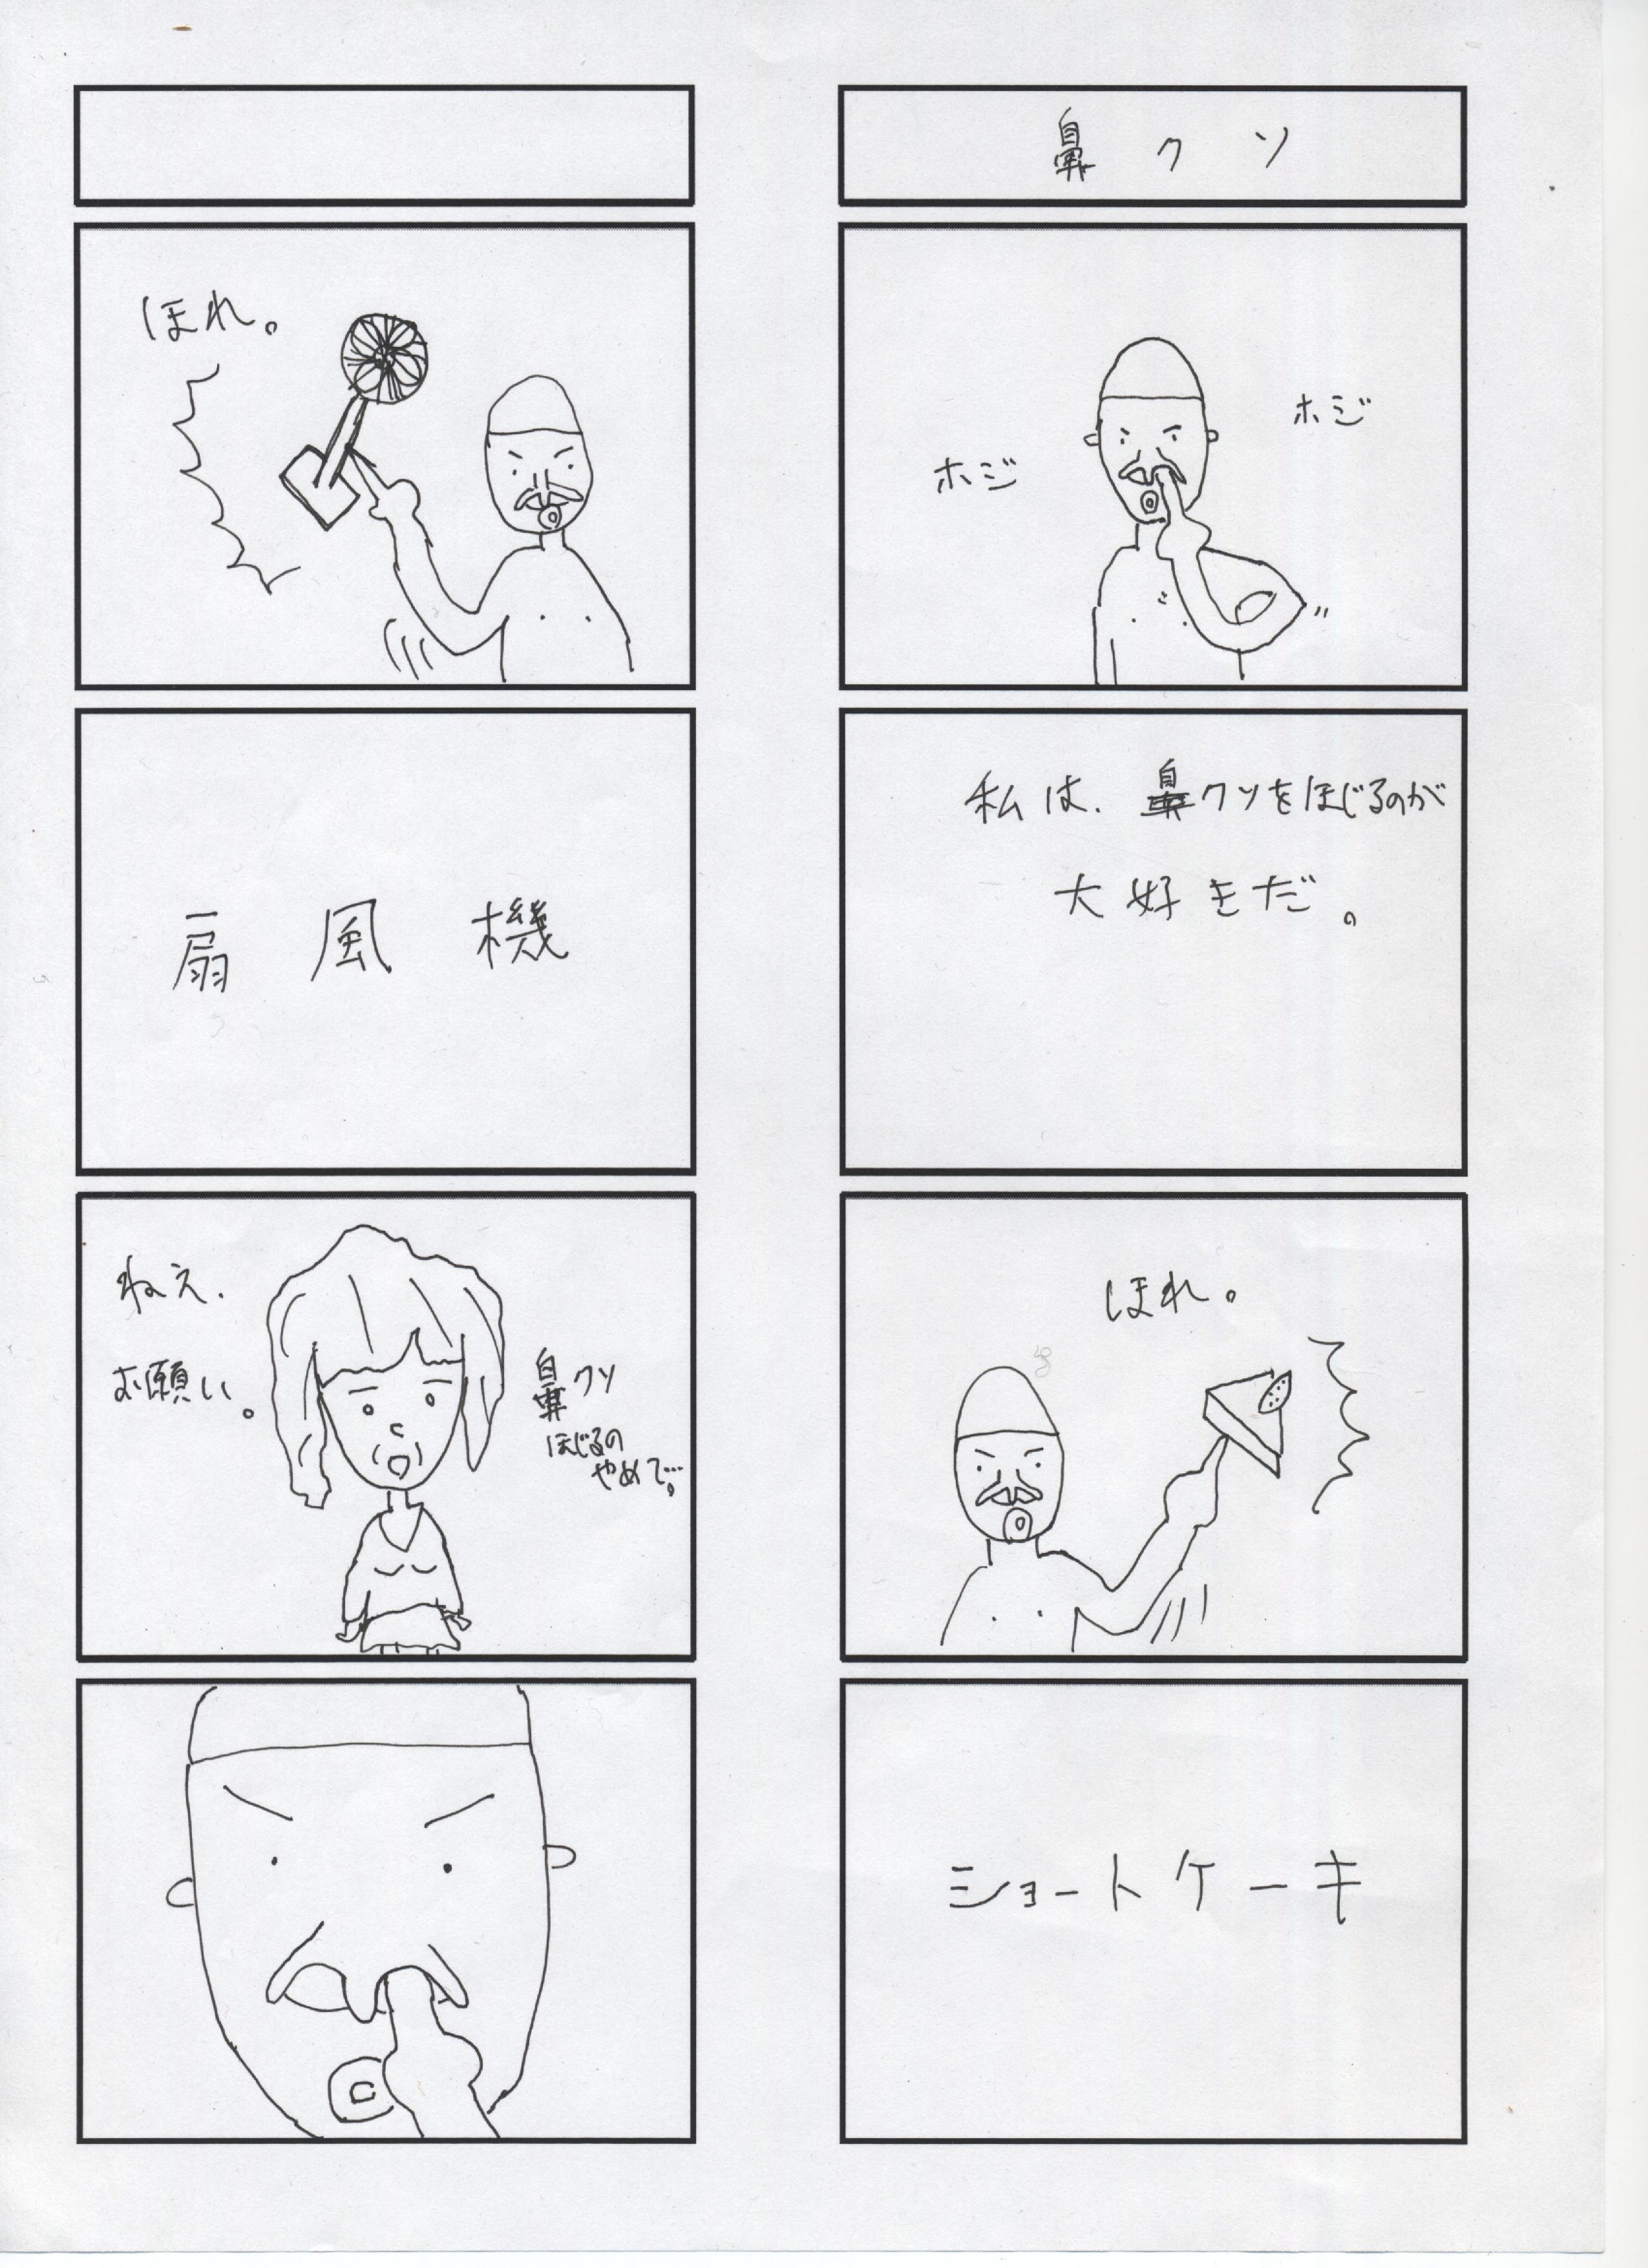 鼻クソ
ホジ
ホジ
私は、鼻クソをほじるのが
大好きだ。
ほれ。
ショートケーキ
ほれ。
扇風機
ねえ、
お願い。
鼻クソ
ほじるの
やめて…。